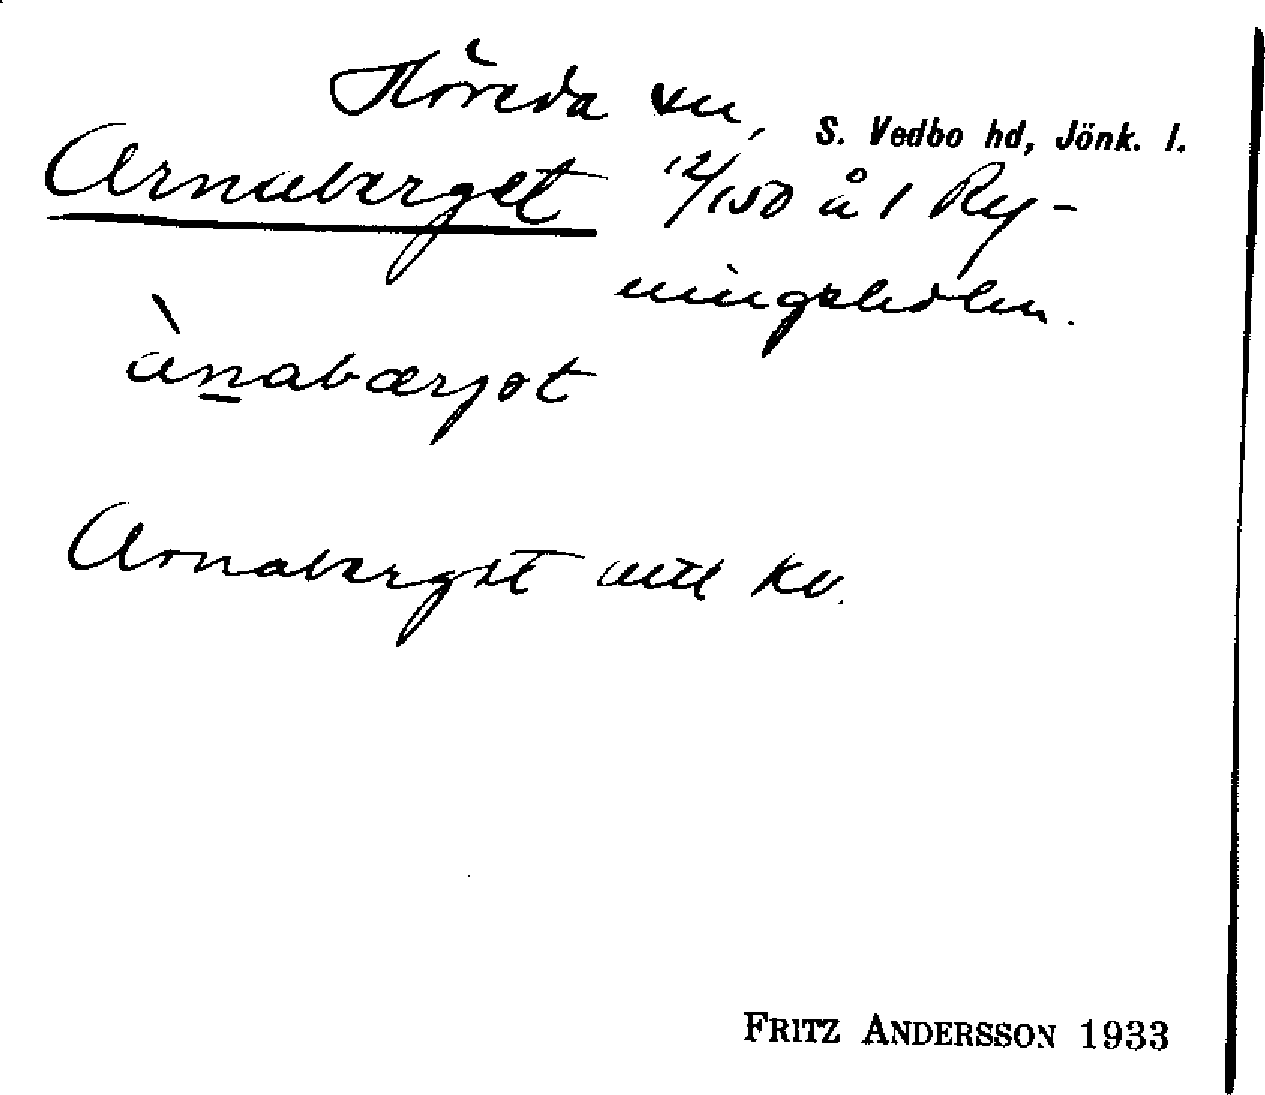 Höreda sn, S. Vedbo hd, Jönk. l.
Arnaberget 12/150 å 1 Ry-
ningsholm.
ànabærjət
Arnaberget utt kv.
FRITZ ANDERSSON 1933